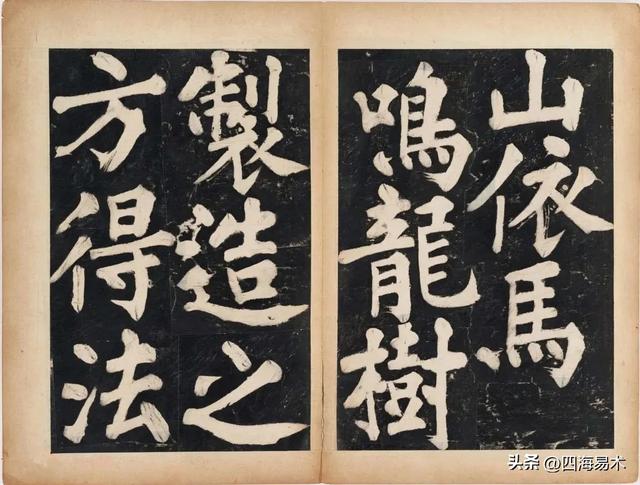 山依馬
鳴龍樹
製造之
方得法
头条 @四海易木